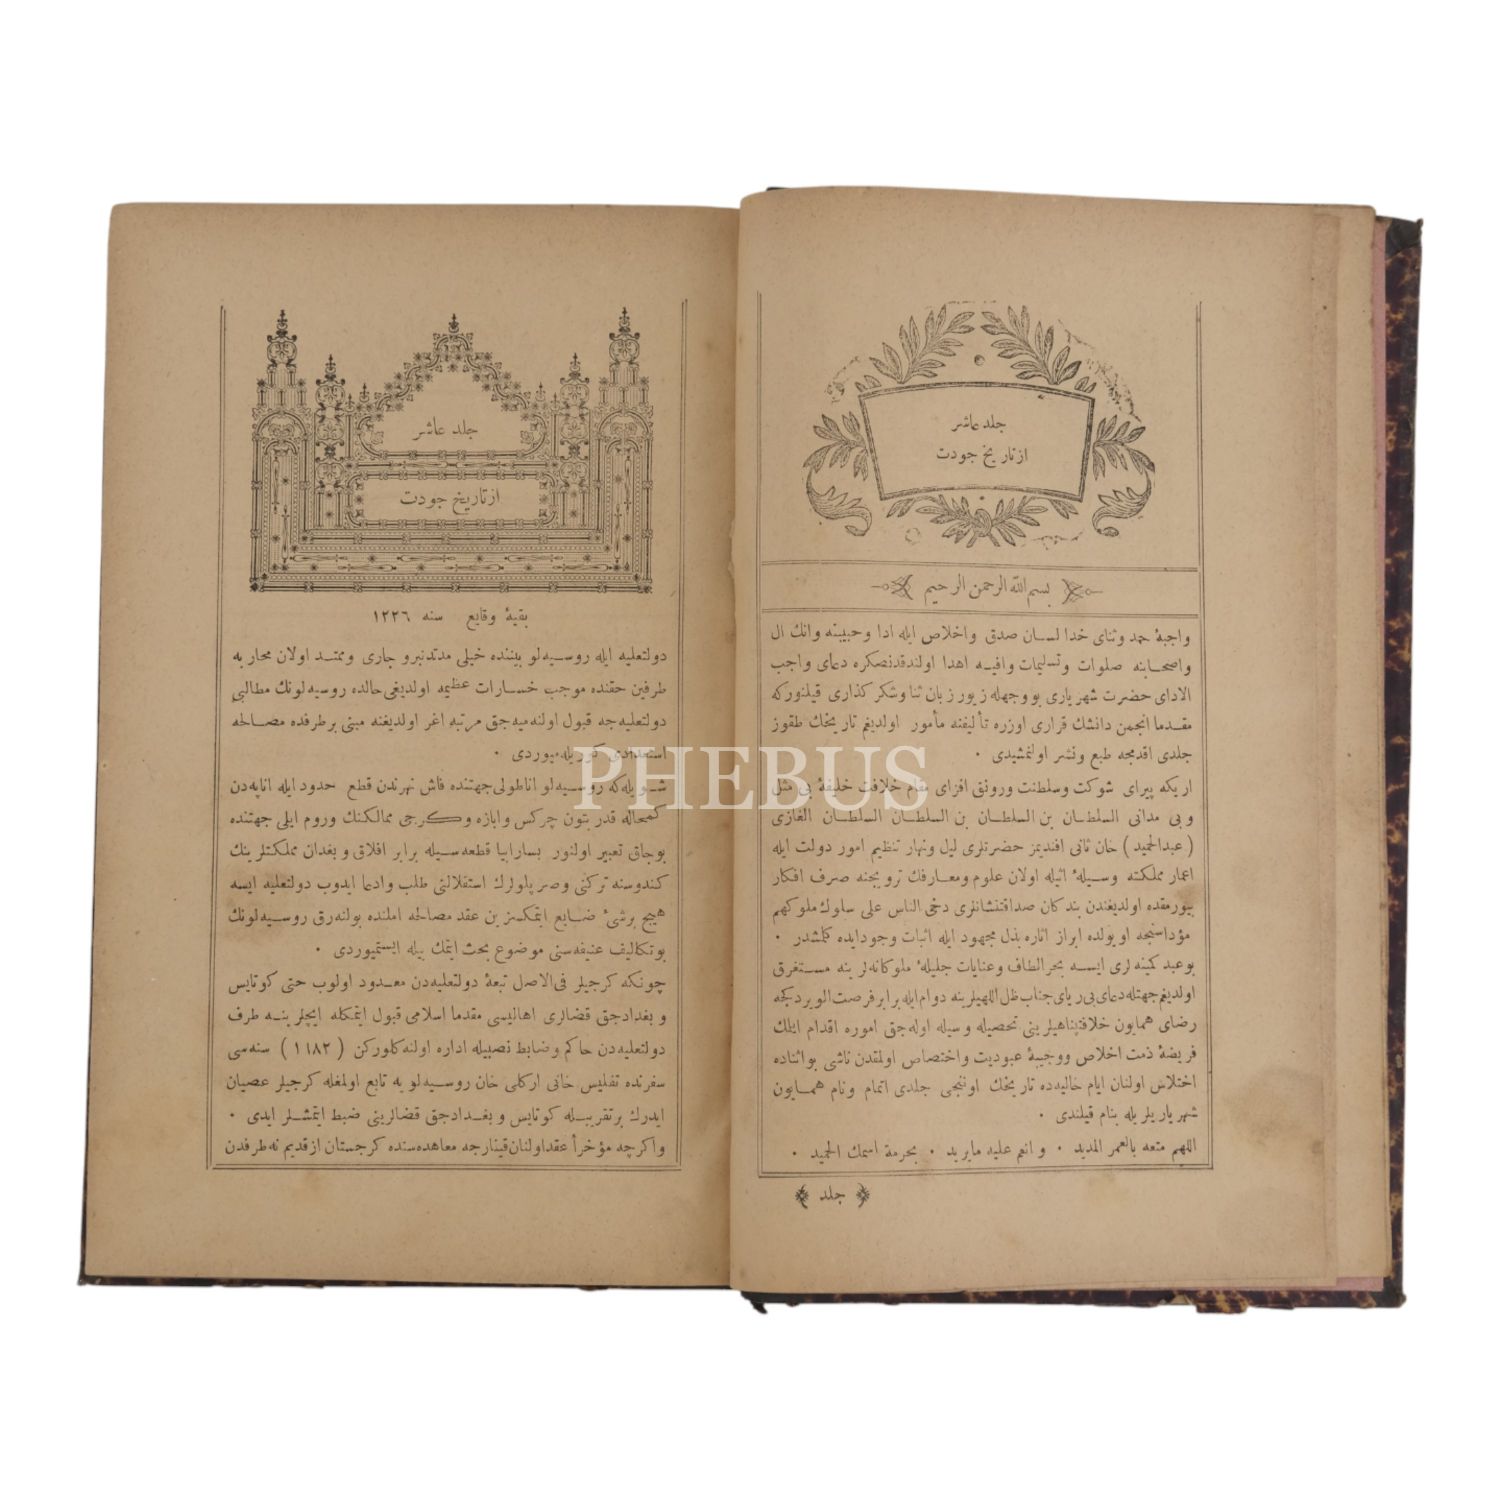 جلد عاشر
از تاريخ جودت
بسم الله الرحمن الرحيم
واجبهٔ حمد وثنای خدا لسان صدق واخلاص ايله ادا وحبيبنه وانك ال
واصحابنه صلوات وتسليمات وافيه اهدا اولندقدنصكره دعای واجب
الادای حضرت شهرياری بووجهله زيور زبان ثنا وشكر كذاری قيلنوركه
مقدما انجمن دانشك قراری اوزره تأليفنه مأمور اولديغم تاريخك طقوز
جلدی اقدمجه طبع ونشر اولنمشيدی ٠
اريكه پيرای شوكت وسلطنت ورونق افزای مقام خلافت خليفهٔ بی مثل
وبی مدانی السلطان بن السلطان بن السلطان السلطان الغازی
( عبدالحميد ) خان ثانی افنديمز حضرتلری ليل ونهار تنظيم امور دولت ايله
اعمار مملكته وسيلهٔ اثيله اولان علوم ومعارفك ترويجنه صرف افكار
بيورمقده اولديغندن بندكان صداقتنشانلری دخی الناس علی سلوك ملوكهم
مؤداسنجه اويولده ابراز اثاره بذل مجهود ايله اثبات وجود ايده كلمشدر ٠
بو عبد كمينه لری ايسه بحر الطاف وعنايات جليلهٔ ملوكانه لرينه مستغرق
اولديغم جهتله دعای بی ريای جناب ظل اللهيلرينه دوام ايله برابر فرصت الويردكجه
رضای همايون خلافتپناهيلرينی تحصيله وسيله اوله جق اموره اقدام ايلك
فريضهٔ ذمت اخلاص ووجيبهٔ عبوديت واختصاص اولمقدن ناشی بو اثناده
اختلاس اولنان ايام خاليه‌ده تاريخك اوننجی جلدی اتمام ونام همايون
شهرياريلريله بنام قيلندی ٠
اللهم متعه بالعمر المديد ٠ وانعم عليه مايريد ٠ بحرمة اسمك الحميد ٠
جلد
جلد عاشر
از تاريخ جودت
بقيهٔ وقايع سنه ١٢٢٦
دولتعليه ايله روسيه‌لو بيننده خيلی مدتدنبرو جاری وممتد اولان محاربه
طرفين حقنده موجب خسارات عظيمه اولديغی حالده روسيه‌لونك مطالبی
دولتعليه‌جه قبول اولنه‌ميه‌جق مرتبه اغر اولديغنه مبنی برطرفده مصالحه
استعدادی كوريله‌ميوردی ٠
شويله‌كه روسيه‌لو اناطولی جهتنده فاش نهرندن قطع حدود ايله اناپه‌دن
كمحاله قدر بتون چركس وابازه وكرجی ممالكنك وروم ايلی جهتنده
بوجاق تعبير اولنور بسارابيا قطعه‌سيله برابر افلاق وبغدان مملكتلرينك
كندوسنه تركنی وصرپلولرك استقلالنی طلب وادعا ايدوب دولتعليه ايسه
هيچ برشیٔ ضايع ايتمكسزين عقد مصالحه املنده بولنه‌رق روسيه‌لونك
بوتكاليف عنيفه‌سنی موضوع بحث ايتمك بيله ايستميوردی ٠
چونكه كرجيلر فی الاصل تبعهٔ دولتعليه‌دن معدود اولوب حتی كوتايس
وبغدادجق قضالری اهاليسی مقدما اسلامی قبول ايتمكله ايچلرينه طرف
دولتعليه‌دن حاكم وضابط نصبيله اداره اولنه‌كلوركن ( ١١٨٢ ) سنه‌سی
سفرنده تفليس خانی اركلی خان روسيه‌لويه تابع اولمغله كرجيلر عصيان
ايدرك برتقريبله كوتايس وبغدادجق قضالرينی ضبط ايتمشلر ايدی ٠
واكرچه مؤخرأ عقد اولنان قينارجه معاهده‌سنده كرجستان ازقديم نه طرفدن
PHEBUS